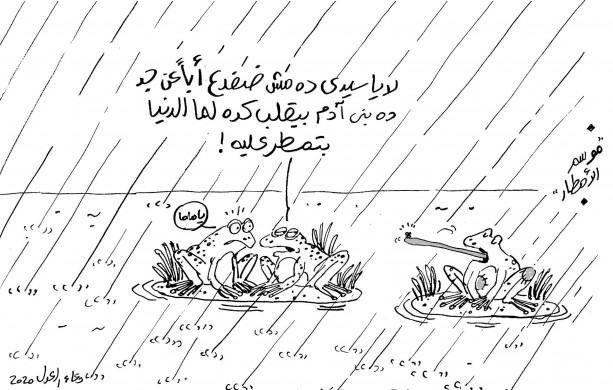 لا يا سيدى ده مش ضفدع أباً عن جد
ده بنى آدم بيقلب كده لما الدنيا
بتمطر عليه !
"موسم
الأمطار"
يا ماما
دعاء العدل 2020